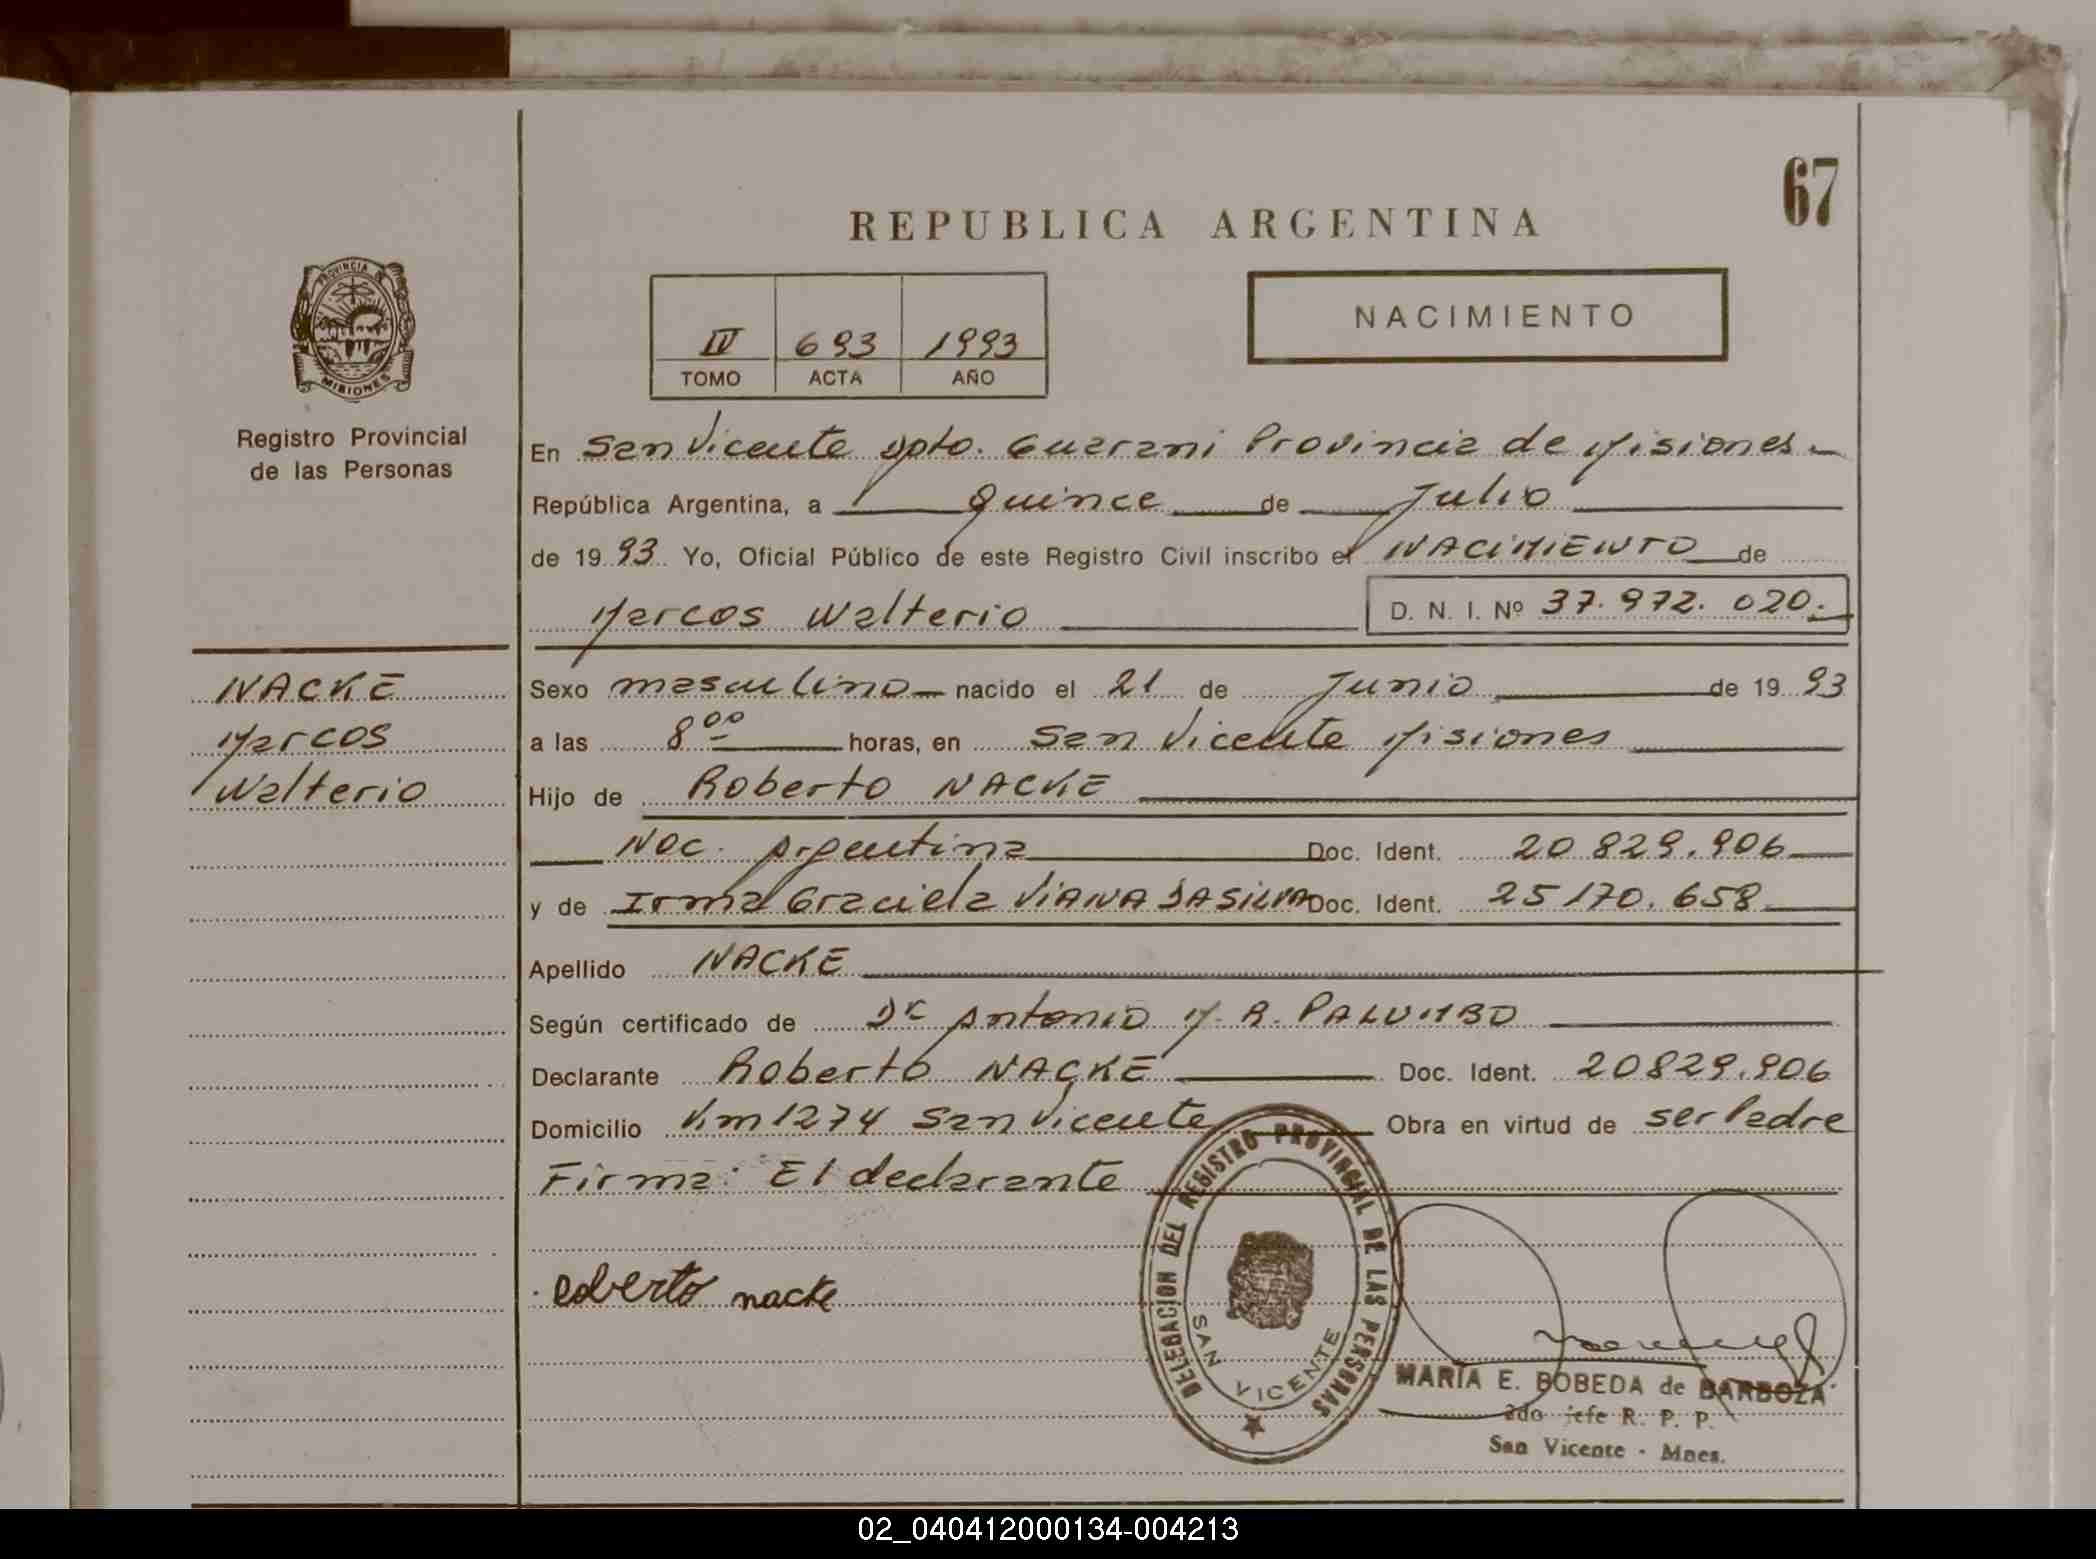 67
REPUBLICA ARGENTINA
PROVINCIA DE
MISIONES
Registro Provincial
de las Personas
IV 693 1993
TOMO ACTA AÑO
NACIMIENTO
En San Vicente Dpto. Guarani Provincia de Misiones
República Argentina, a Quince de Julio
de 1993. Yo, Oficial Público de este Registro Civil inscribo el NACIMIENTO de
Marcos Walterio D. N. I. Nº 37.972.020.
NACKE
Marcos
Walterio
Sexo masculino nacido el 21 de Junio de 1993
a las 8 00 horas, en San Vicente Misiones
Hijo de Roberto NACKE
Nac. Argentina Doc. Ident. 20 829.906
y de Irma Graciela VIANA DA SILVA Doc. Ident. 25 170.658
Apellido NACKE
Según certificado de Dr Antonio M. R. PALUMBO
Declarante Roberto NACKE Doc. Ident. 20829.906
Domicilio Km 1274 San Vicente Obra en virtud de ser Padre
Firma: El declarante
Roberto nacke
DELEGACION DEL REGISTRO PROVINCIAL DE LAS PERSONAS
SAN VICENTE
MARIA E. BOBEDA de BARBOZA
2do jefe R. P. P.
San Vicente - Mnes.
02_040412000134-004213